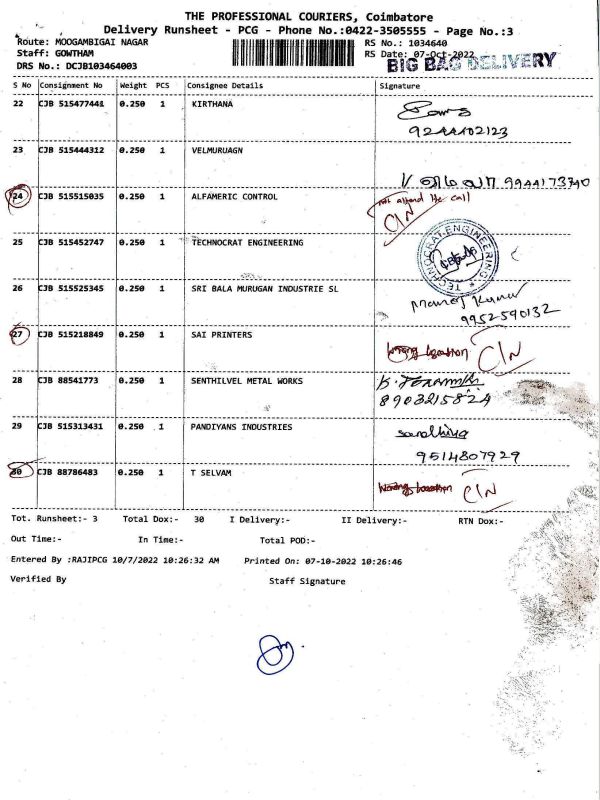 THE PROFESSIONAL COURIERS, Coimbatore
Delivery Runsheet - PCG - Phone No.:0422-3505555 - Page No.:3
Route: MOOGAMBIGAI NAGAR RS No.: 1034640
Staff: GOWTHAM RS Date: 07-Oct-2022
DRS No.: DCJB103464003 BIG BAG DELIVERY
S No Consignment No Weight PCS Consignee Details Signature
22 CJB 515477448 0.250 1 KIRTHANA
9244402123
23 CJB 515444312 0.250 1 VELMURUAGN
9944173740
24 CJB 515515035 0.250 1 ALFAMERIC CONTROL not attend the call
C/N
25 CJB 515452747 0.250 1 TECHNOCRAT ENGINEERING TECHNOCRAT ENGINEERING
26 CJB 515525345 0.250 1 SRI BALA MURUGAN INDUSTRIE SL Manoj Kumar
9952590132
27 CJB 515218849 0.250 1 SAI PRINTERS
Wrong location C/N
28 CJB 88541773 0.250 1 SENTHILVEL METAL WORKS
8903215824
29 CJB 515313431 0.250 1 PANDIYANS INDUSTRIES
9514807929
30 CJB 88786483 0.250 1 T SELVAM
Wrong location C/N
Tot. Runsheet:- 3 Total Dox:- 30 I Delivery:- II Delivery:- RTN Dox:-
Out Time:- In Time:- Total POD:-
Entered By :RAJIPCG 10/7/2022 10:26:32 AM Printed On: 07-10-2022 10:26:46
Verified By Staff Signature